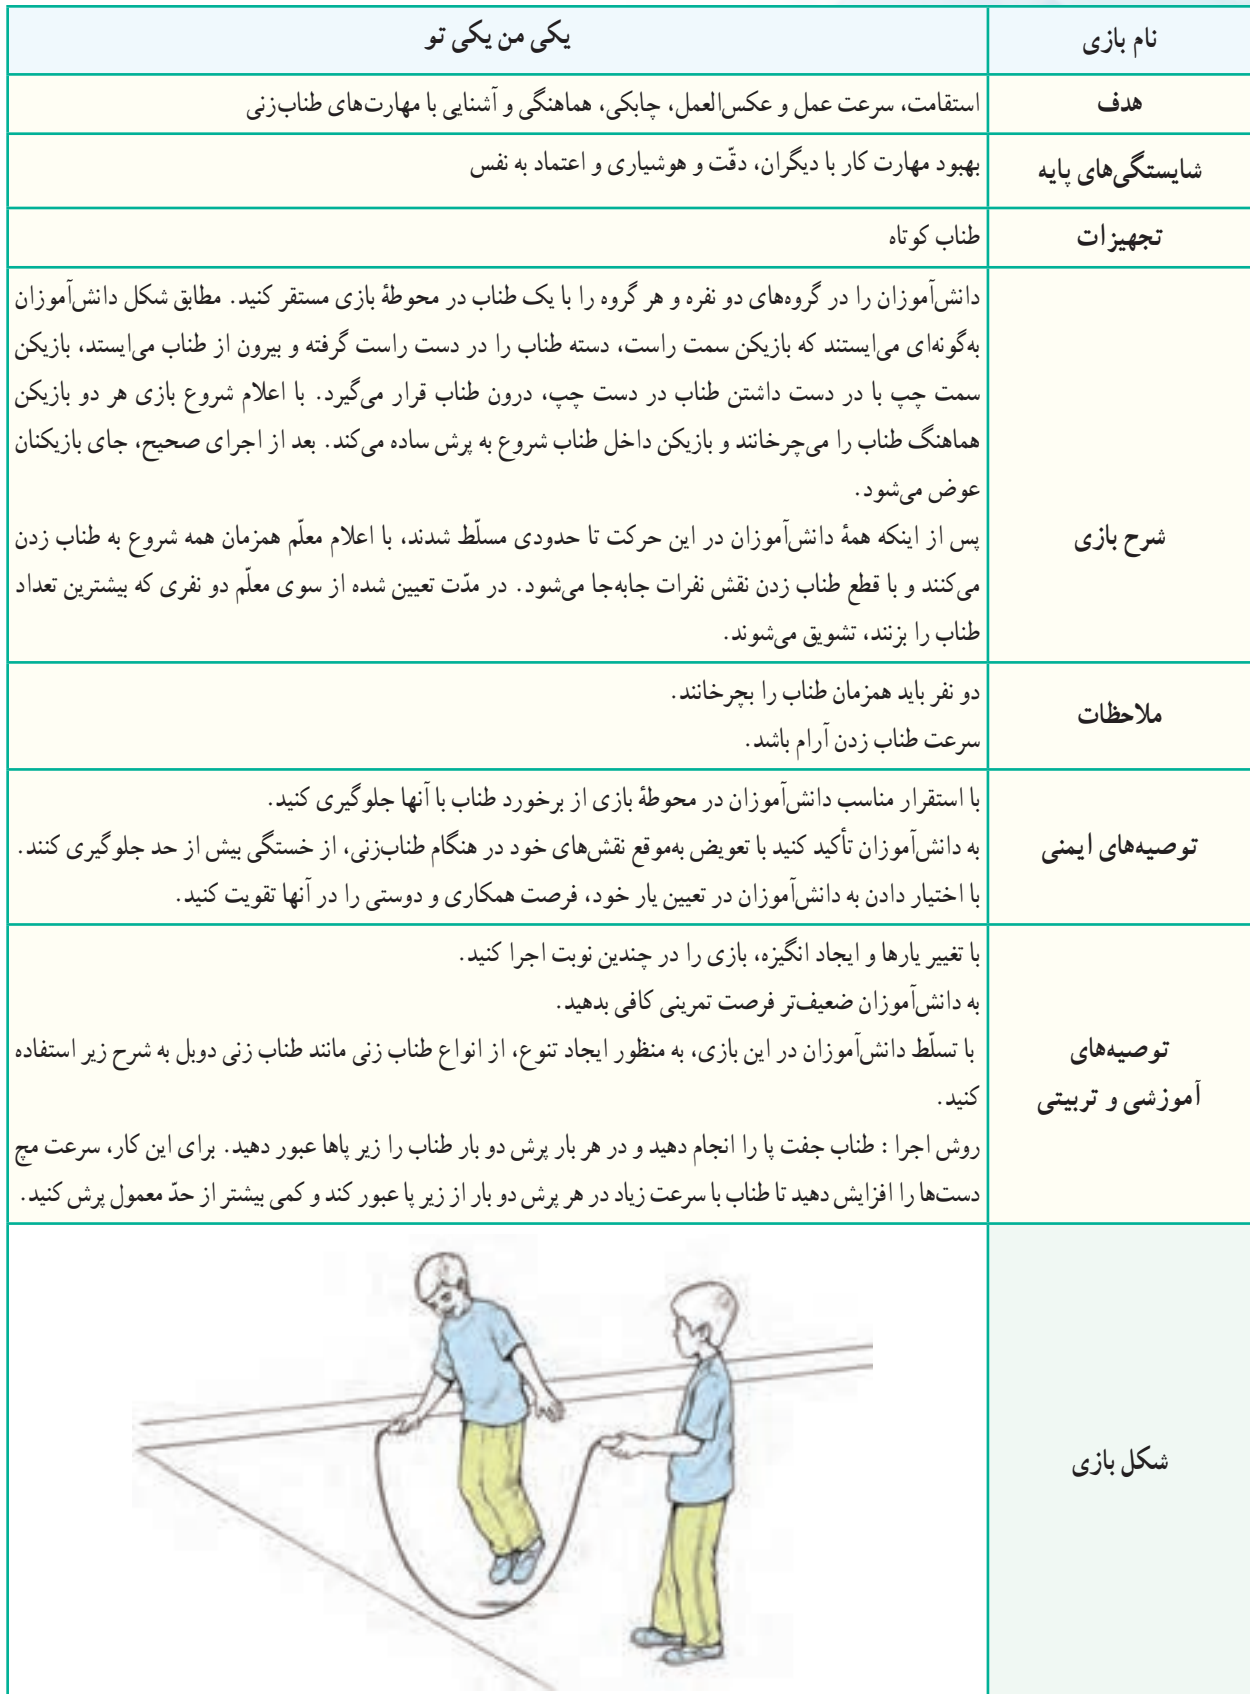 نام بازی
یکی من یکی تو
هدف
استقامت، سرعت عمل و عکس‌العمل، چابکی، هماهنگی و آشنایی با مهارت‌های طناب‌زنی
شایستگی‌های پایه
بهبود مهارت کار با دیگران، دقّت و هوشیاری و اعتماد به نفس
تجهیزات
طناب کوتاه
شرح بازی
دانش‌آموزان را در گروه‌های دو نفره و هر گروه را با یک طناب در محوطهٔ بازی مستقر کنید. مطابق شکل دانش‌آموزان
به‌گونه‌ای می‌ایستند که بازیکن سمت راست، دسته طناب را در دست راست گرفته و بیرون از طناب می‌ایستد، بازیکن
سمت چپ با در دست داشتن طناب در دست چپ، درون طناب قرار می‌گیرد. با اعلام شروع بازی هر دو بازیکن
هماهنگ طناب را می‌چرخانند و بازیکن داخل طناب شروع به پرش ساده می‌کند. بعد از اجرای صحیح، جای بازیکنان
عوض می‌شود.
پس از اینکه همهٔ دانش‌آموزان در این حرکت تا حدودی مسلّط شدند، با اعلام معلّم همزمان همه شروع به طناب زدن
می‌کنند و با قطع طناب زدن نقش نفرات جابه‌جا می‌شود. در مدّت تعیین شده از سوی معلّم دو نفری که بیشترین تعداد
طناب را بزنند، تشویق می‌شوند.
ملاحظات
دو نفر باید همزمان طناب را بچرخانند.
سرعت طناب زدن آرام باشد.
توصیه‌های ایمنی
با استقرار مناسب دانش‌آموزان در محوطهٔ بازی از برخورد طناب با آنها جلوگیری کنید.
به دانش‌آموزان تأکید کنید با تعویض به‌موقع نقش‌های خود در هنگام طناب‌زنی، از خستگی بیش از حد جلوگیری کنند.
با اختیار دادن به دانش‌آموزان در تعیین یار خود، فرصت همکاری و دوستی را در آنها تقویت کنید.
توصیه‌های
آموزشی و تربیتی
با تغییر یارها و ایجاد انگیزه، بازی را در چندین نوبت اجرا کنید.
به دانش‌آموزان ضعیف‌تر فرصت تمرینی کافی بدهید.
با تسلّط دانش‌آموزان در این بازی، به منظور ایجاد تنوع، از انواع طناب زنی مانند طناب زنی دوبل به شرح زیر استفاده
کنید.
روش اجرا : طناب جفت پا را انجام دهید و در هر بار پرش دو بار طناب را زیر پاها عبور دهید. برای این کار، سرعت مچ
دست‌ها را افزایش دهید تا طناب با سرعت زیاد در هر پرش دو بار از زیر پا عبور کند و کمی بیشتر از حدّ معمول پرش کنید.
شکل بازی